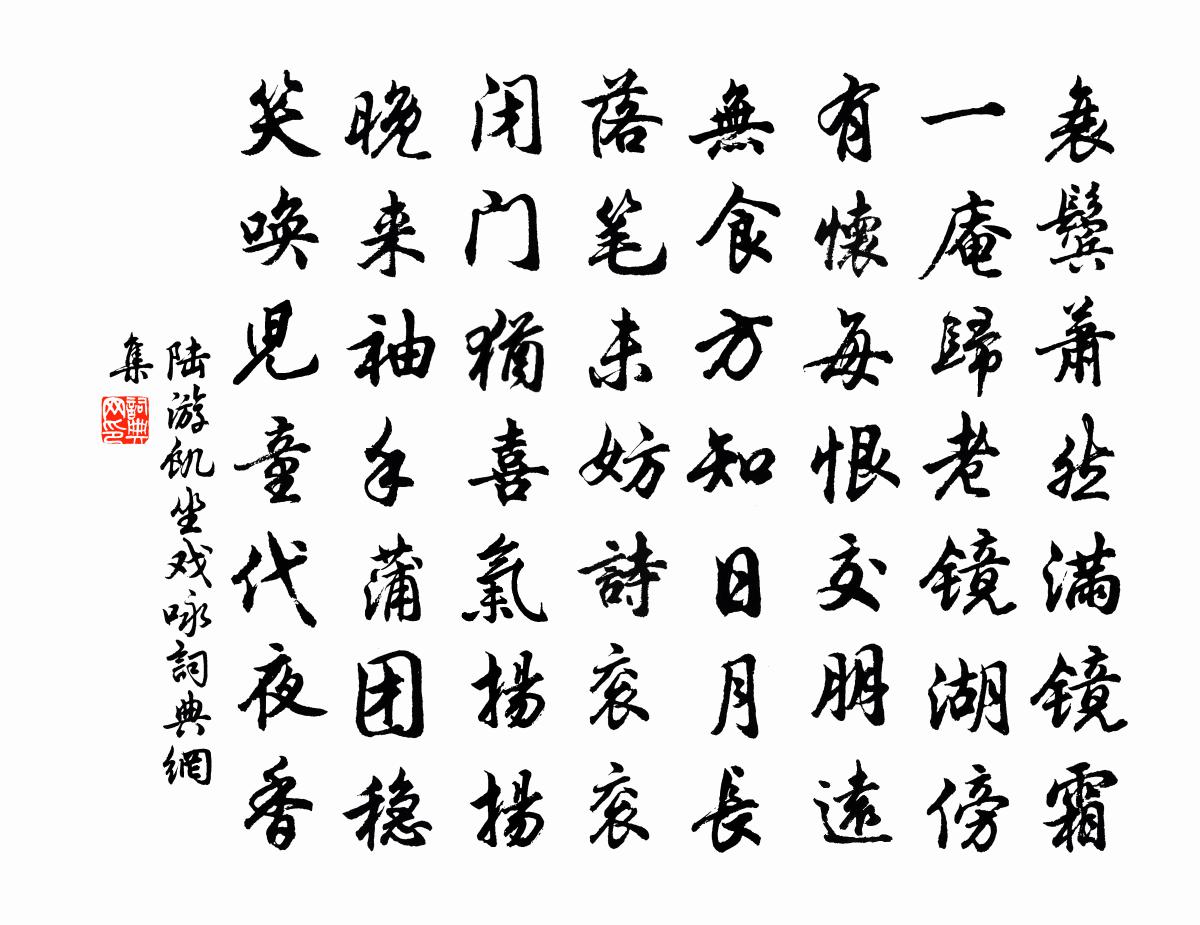 衰鬓萧然满镜霜
一庵歸老镜湖傍
有懷每恨交朋遠
無食方知日月長
落笔未妨詩衮衮
闭门猶喜氣揚揚
晚来袖手蒲团稳
笑唤児童代夜香
陆游飢坐戏咏詞典網
集
詞典
网印